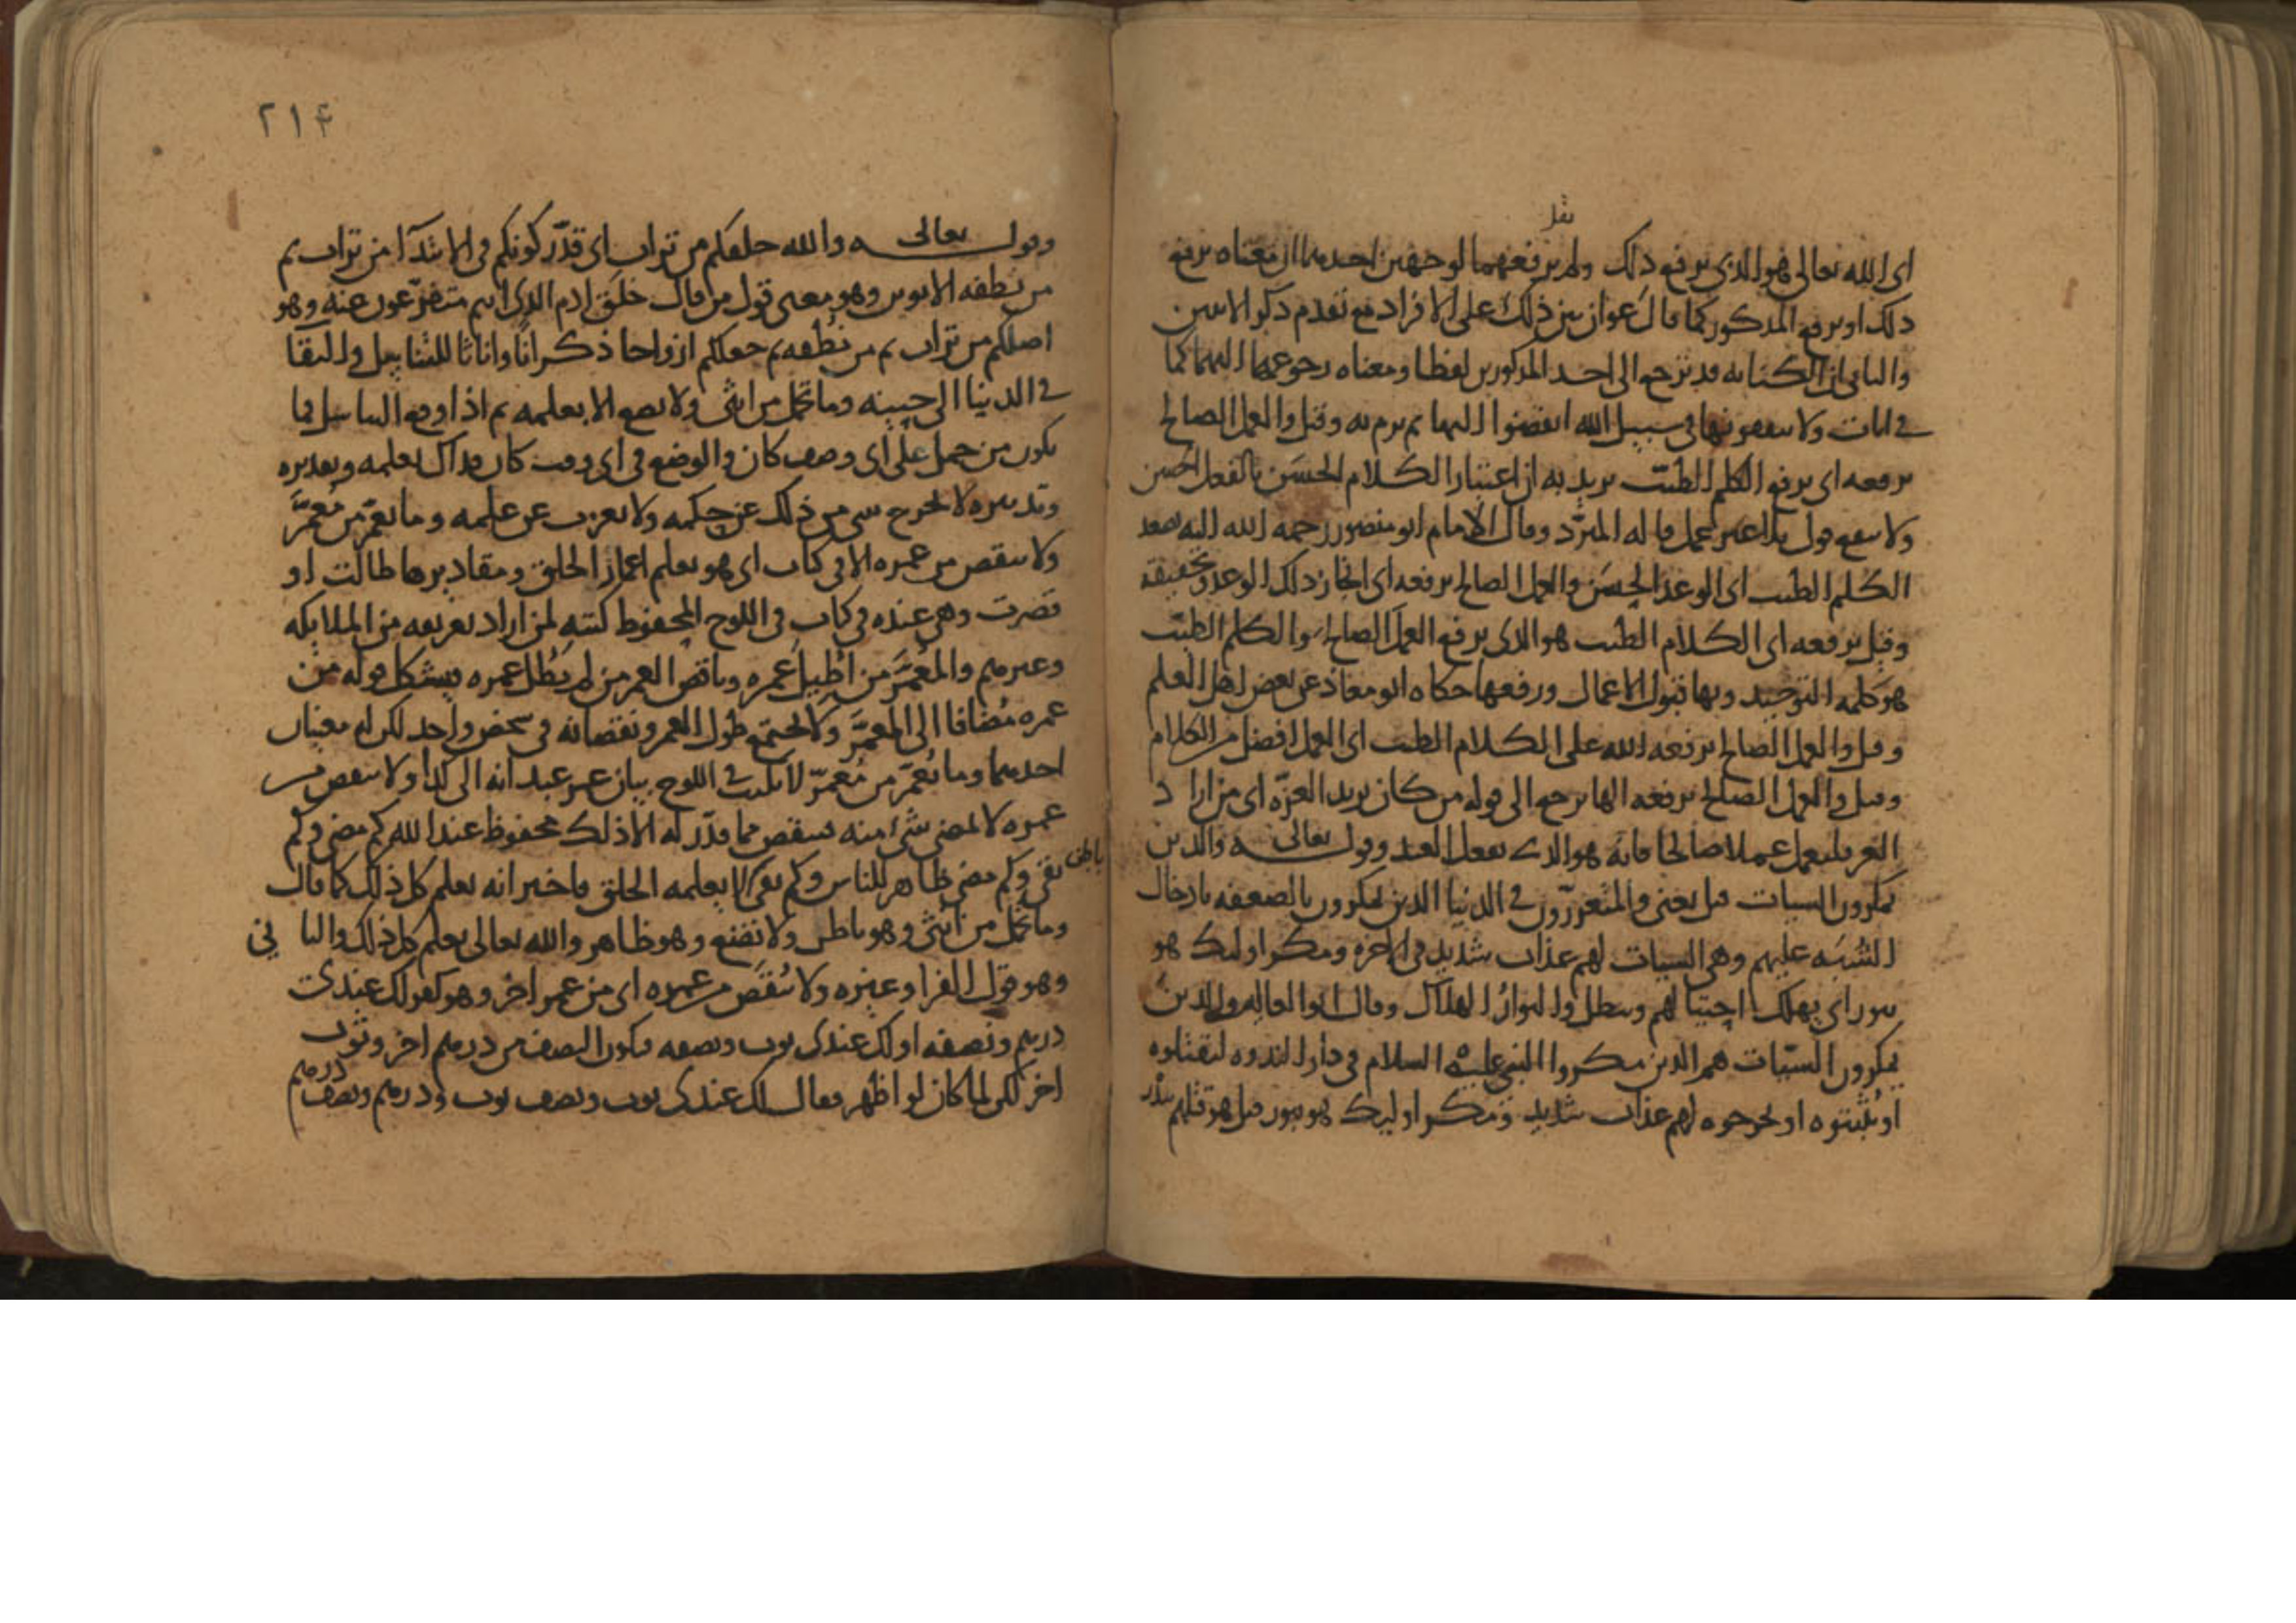 يقل
اى الله تعالى فهو الذي يرفع ذلك ولم يرفعهما لوجهين احدهما ان معناه يرفع
ذلك او يرفع المذكور كما قال عوان بين ذلك على الافراد مع تقدم ذكر الاسمين
والثاني ان الكناية قد ترجع الى احد المذكورين لفظا ومعناه رجوعها اليهما كما
في ايات ولا ينفقونها في سبيل الله انفضوا اليها ثم يرم به وقيل والعمل الصالح
يرفعه اى يرفع الكلم الطيب يريد به ان اعتبار الكلام الحسن بالفعل الحسن
ولا ينفع قول بلا عمل قاله المبرد وقال الامام ابو منصور رحمه الله اليه يصعد
الكلم الطيب اى الوعد الحسن والعمل الصالح يرفعه اى انجاز ذلك الوعد وتحقيقه
وقيل يرفعه اى الكلام الطيب هو الذى يرفع العمل الصالح والكلم الطيب
هو كلمة التوحيد وبها قبول الاعمال ورفعها حكاه ابو معاذ عن بعض اهل العلم
وقيل والعمل الصالح يرفعه الله على الكلام الطيب اى العمل افضل من الكلام
وقيل والعمل الصالح يرفعه الها يرجع الى قوله من كان يريد العزة اى من اراد
العز فليعمل عملا صالحا فانه هو الذي يفعل العبد وقوله تعالى والذين
يمكرون السيات قيل يعنى والمتعززون في الدنيا الذين يمكرون بالضعفه بادخال
الشبه عليهم وهي السيات لهم عذاب شديد في الاخرة ومكر اوليك هو
يبور اى يهلك احتيالهم ويبطل والبوار الهلاك وقال ابو العالية والذين
يمكرون السيات هم الذين مكروا النبي عليه السلام في دار الندوة ليقتلوه
او يثبتوه او يخرجوه لهم عذاب شديد ومكر اوليك هو يبور قيل هو قتلهم ببدر
٢١٤
وقوله تعالى والله خلقكم من تراب اى قدر كونكم في الابتدآ من تراب ثم
من نطفة الابوين وهو معنى قول من قال خلق ادم الذى انتم متفرعون عنه وهو
اصلكم من تراب ثم من نطفه ثم جعلكم ازواجا ذكرانا واناثا للتناسل والبقا
في الدنيا الى حينه وما تحمل من انثى ولا تضع الا بعلمه ثم اذا وقع التناسل فما
يكون من حمل على اى وصف كان والوضع في اى وقت كان فذاك بعلمه وتقديره
وتدبيره لا يخرج شي من ذلك عن حكمه ولا يعزب عن علمه وما يعمر من معمر
ولا ينقص من عمره الا في كتاب اى هو يعلم اعمار الخلق ومقاديرها طالت او
قصرت وهي عنده في كتاب في اللوح المحفوظ كتبه لمن اراد تعريفه من الملايكه
وغيرهم والمعمر من اطيل عمره وناقص العمر من لم يطل عمره ويشكل قوله من
عمره مضافا الى المعمر ولا يجتمع طول العمر ونقصانه في شخص واحد لكن له معنيان
احدهما وما يعمر من معمر لا يكتب في اللوح بيان عمر عبد انه الى كذا ولا ينقص من
عمره لا يمضي شئ منه فينقص مما قدر له الا ذلك محفوظ عند الله كم مضى وكم
بقي وكم مضى ظاهر للناس وكم بقي لا يعلمه الخلق فاخبر انه يعلم كل ذلك كما قال
باطن
وما تحمل من انثى وهو باطن ولا تضع وهو ظاهر والله تعالى يعلم كل ذلك والثا ني
وهو قول الفرا وغيره ولا ينقص من عمره اى من عمر اخر وهو كقولك عندي
درهم ونصفه او لك عندى ثوب ونصفه فيكون النصف من درهم اخر وثوب
اخر لكن لما كان لو اظهر فقال لك عندى ثوب ونصف ثوب ودرهم ونصف درهم